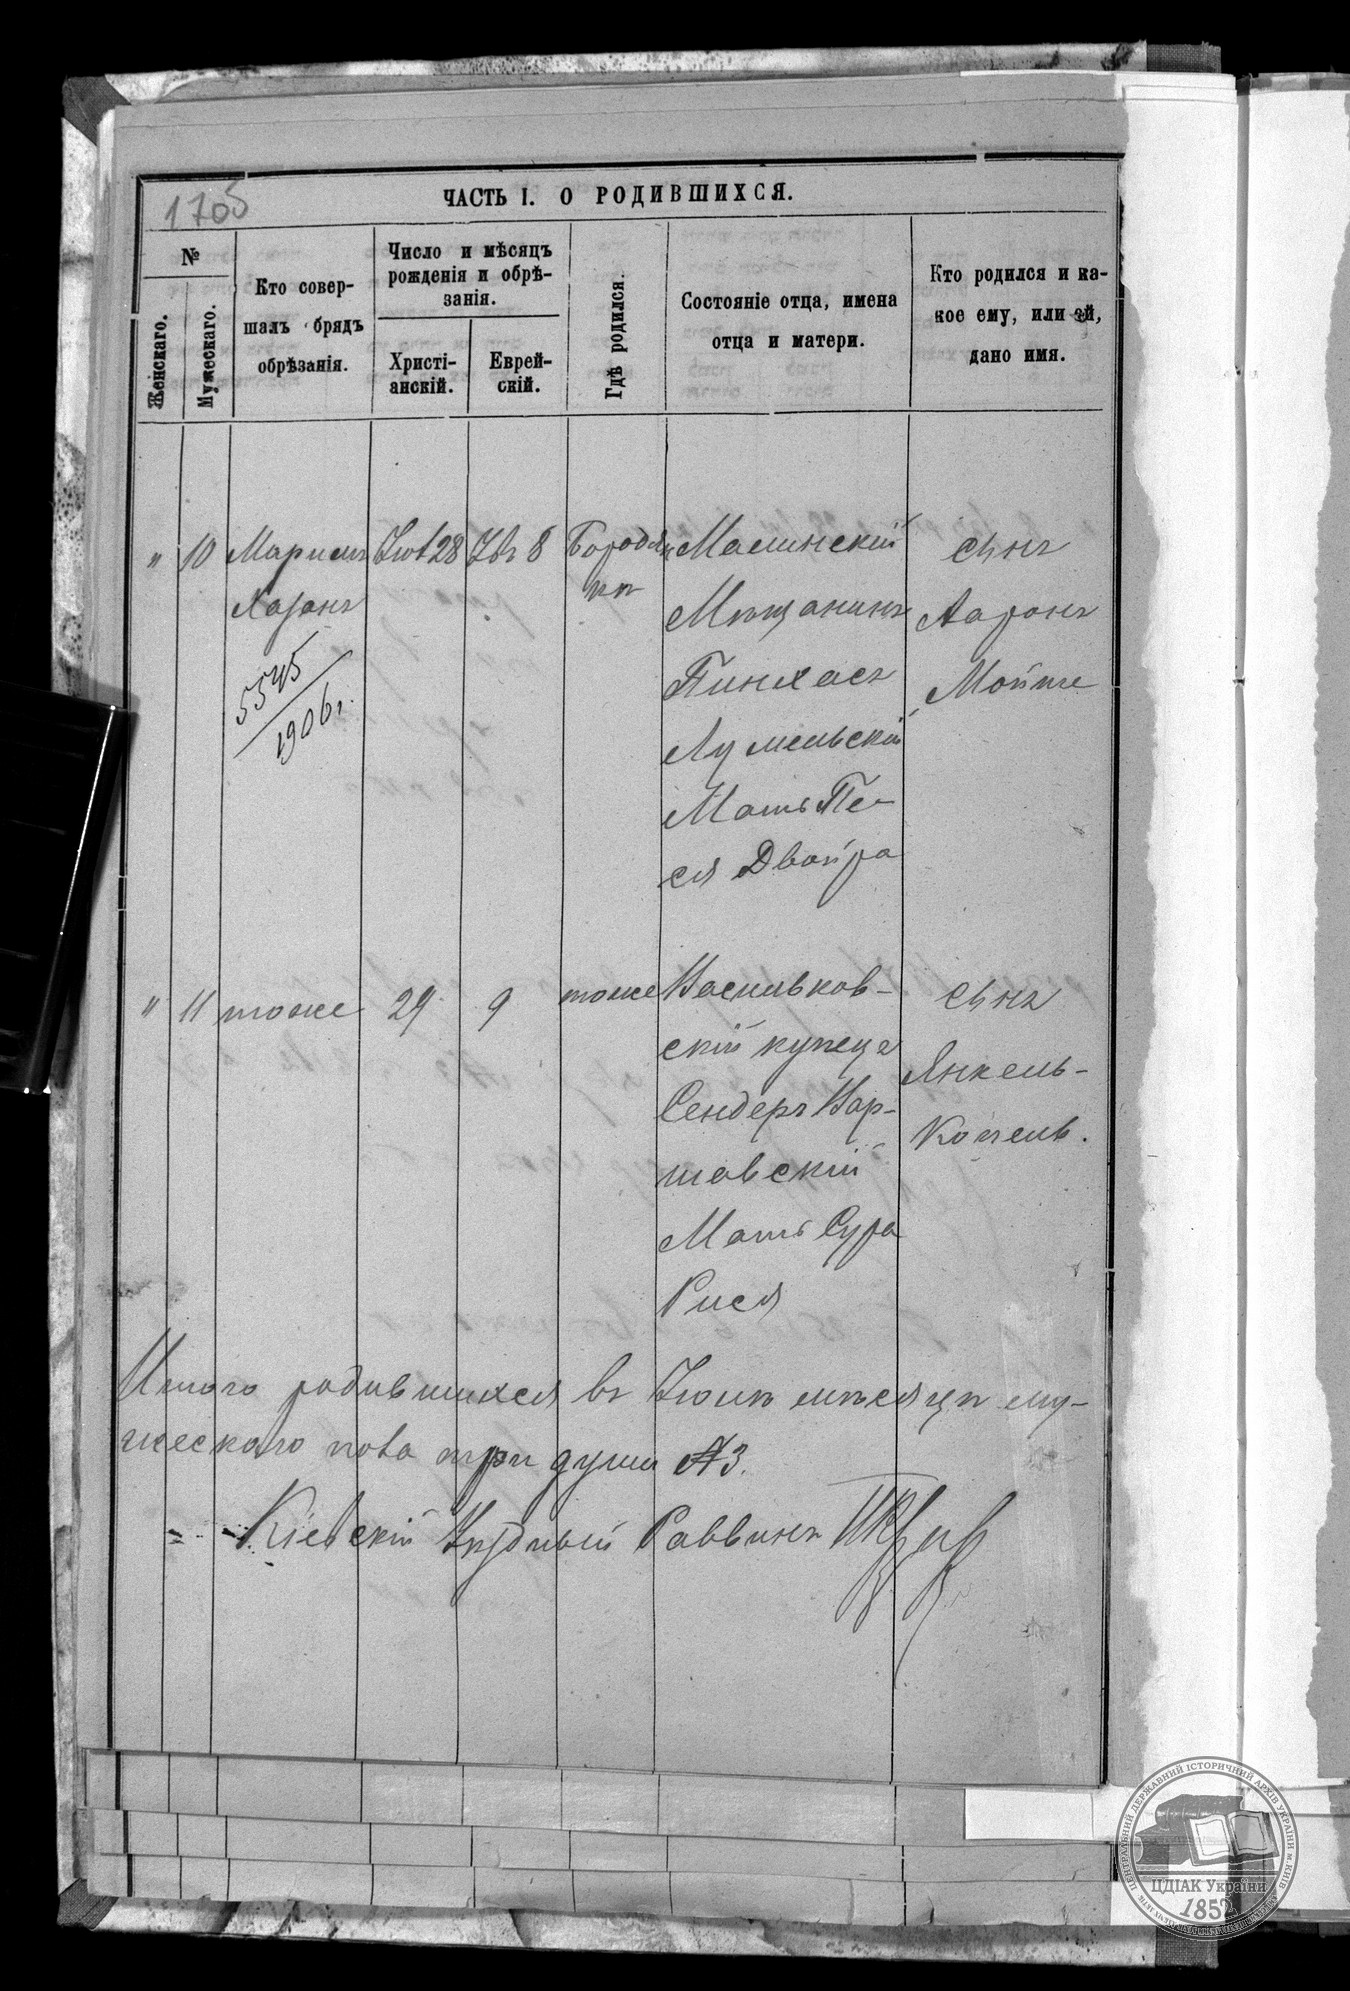 1705
ЧАСТЬ I. О РОДИВШИХСЯ.
№
Женскаго.
Мужескаго.
Кто совер-
шалъ обрядъ
обрѣзанія.
Число и мѣсяцъ
рожденія и обрѣ-
занія.
Христі-
анскій.
Еврей-
скій.
Гдѣ родился.
Состояніе отца, имена
отца и матери.
Кто родился и ка-
кое ему, или ей,
дано имя.
" 10
Хазанъ
5545
1906 г.
28
8
Бородян
кѣ
Малинскій
Мѣщанинъ
Пинхасъ
Мать Пе-
ся Двойра
сынъ
Ааронъ
Мойше
" 11 тоже 29 9 тоже
Васильков-
скій купецъ
Сендеръ Вар-
шавскій
Мать Сура
Рися
сынъ
Янкель-
Копель.
Итого родившихся въ Іюлѣ мѣсяцѣ му-
жескаго пола три души №3.
Кіевскій Уѣздный Раввинъ
ЦЕНТРАЛЬНИЙ ДЕРЖАВНИЙ ІСТОРИЧНИЙ АРХІВ УКРАЇНИ м. КИЇВ
ЦДІАК України
1852